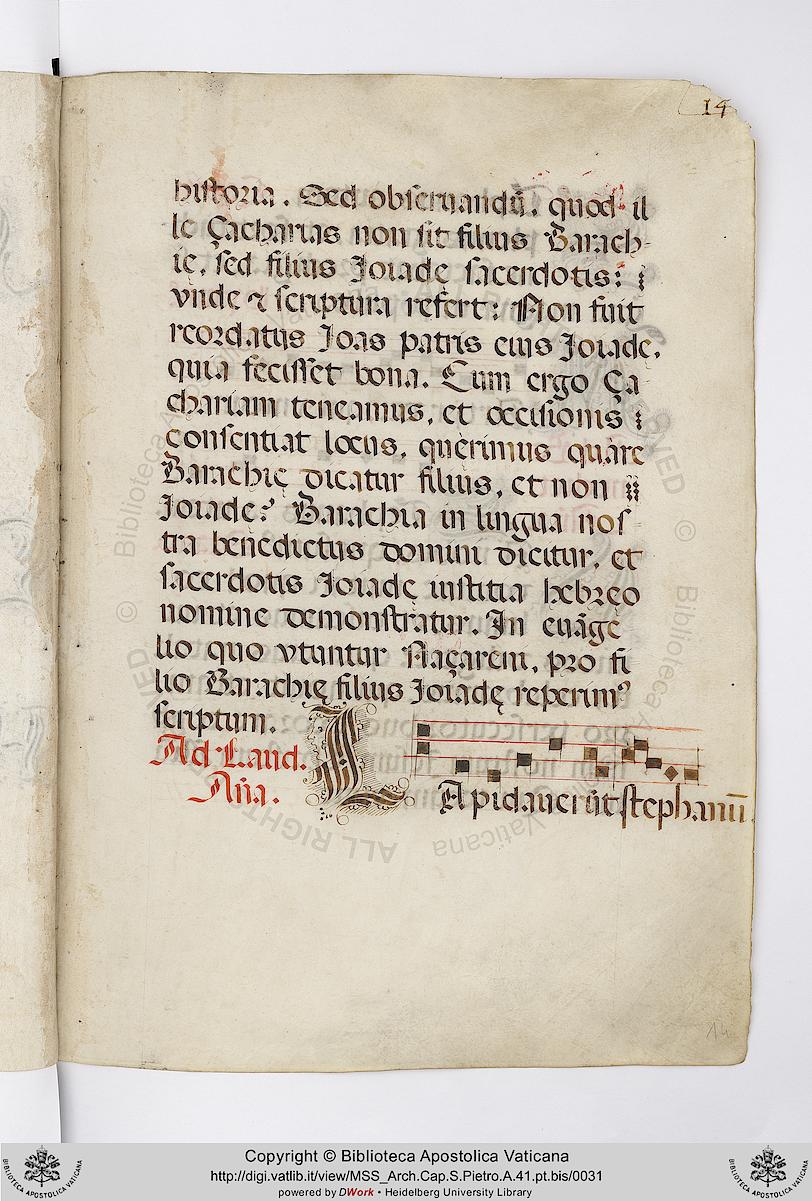 14
historia. Sed obseruandū. quod il
le Çacharias non sit filius Barach-
ie. sed filius Joiadę sacerdotis:
vnde ⁊ scriptura refert: Non fuit
recordatus Joas patris eius Joiadę.
quia fecisset bona. Cum ergo Ça
chariam teneamus, et occisionis
consentiat locus, querimus quare
Barachię dicatur filius, et non
Joiade? Barachia in lingua nos
tra benedictus domini dicitur, et
sacerdotis Joiadę iustitia hebręo
nomine demonstratur. In euāge
lio quo vtuntur Naçareni, pro fi
lio Barachię filius Joiadę reperimꝰ
scriptum.
Ad Laud.
Añа.
LApidauerūt stephanū
14
Copyright © Biblioteca Apostolica Vaticana
http://digi.vatlib.it/view/MSS_Arch.Cap.S.Pietro.A.41.pt.bis/0031
powered by DWork • Heidelberg University Library